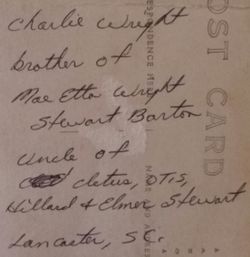 Charlie Wright
brother of
Mae Etta Wright
Stewart Barton
Uncle of
Cletus, Otis,
Hillard & Elmer Stewart
Lancaster, SC.
POST CARD